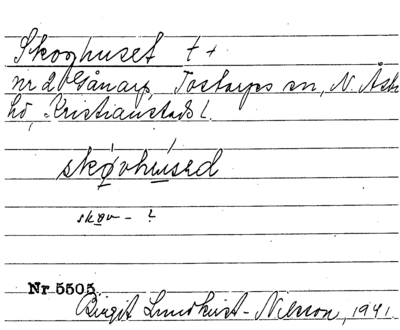 Skoghuset t +
nr 2 Gånarp, Tostarps sn, N. Åsbo
hd, Kristianstads l.
skǫvhu̲səd
skǫv - ?
Nr 5505
Birgit Lundkvist-Nilsson, 1941.